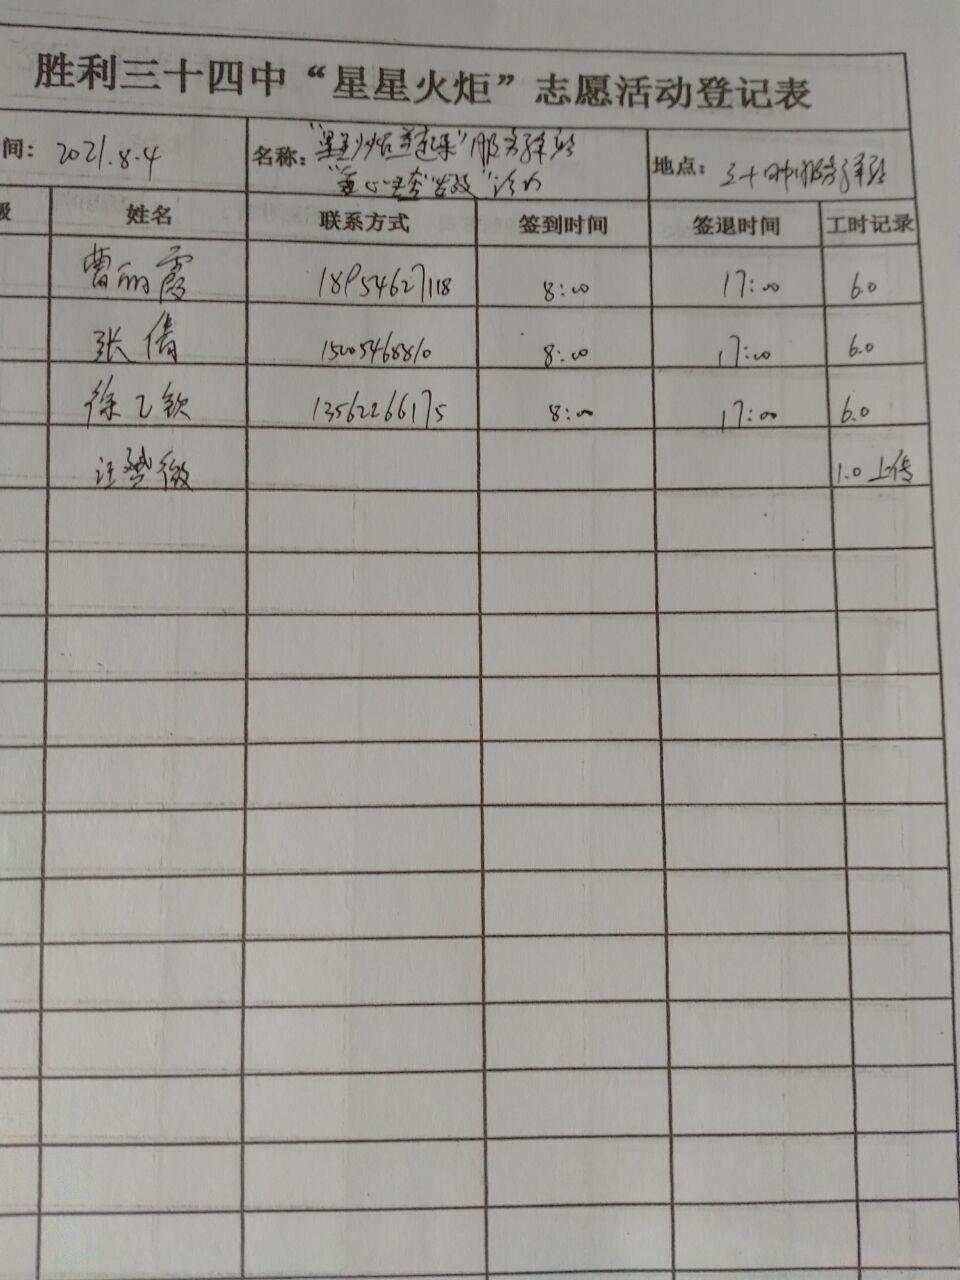 胜利三十四中“星星火炬”志愿活动登记表
间: 2021.8.4 名称: 服务驿站 地点: 三十四中服务驿站
级 姓名 联系方式 签到时间 签退时间 工时记录
曹丽霞 18954627118 8:00 17:00 6.0
张倩 15005468810 8:00 17:00 6.0
徐乙钦 13562266175 8:00 17:00 6.0
汪楚薇 1.0上传